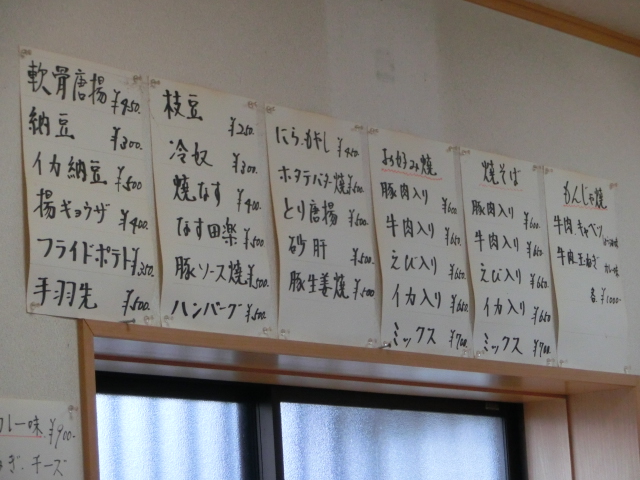 軟骨唐揚 ¥450.
納豆 ¥300.
イカ納豆 ¥500
揚ギョウザ ¥400.
フライドポテト ¥350.
手羽先 ¥500.
枝豆 ¥250.
冷奴 ¥300.
焼なす ¥400.
なす田楽 ¥500
豚ソース焼 ¥500.
ハンバーグ ¥500.
にら.もやし ¥450.
ホタテバター焼 ¥500.
とり唐揚 ¥500.
砂肝 ¥500.
豚生姜焼 ¥500
お好み焼
豚肉入り ¥600.
牛肉入り ¥650.
えび入り ¥650.
イカ入り ¥650.
ミックス ¥700.
焼そば
豚肉入り ¥600.
牛肉入り ¥650.
えび入り ¥650.
イカ入り ¥650.
ミックス ¥700.
もんじゃ焼
牛肉.キャベツ
牛肉.玉ねぎ カレー味
各 ¥1000-
カレー味 ¥900-
ぎ.チーズ